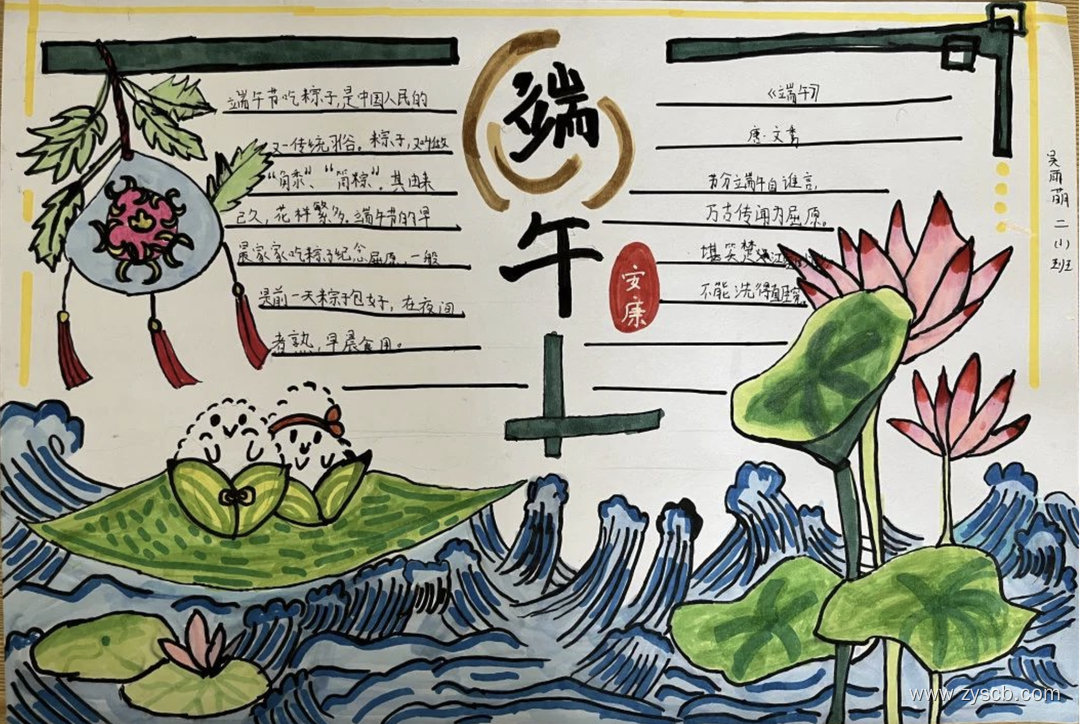 端午
安康
端午节吃粽子,是中国人民的
又一传统习俗。粽子,又叫做
“角黍”、“筒粽”。其由来
已久,花样繁多。端午节的早
晨家家吃粽子纪念屈原,一般
是前一天粽子包好,在夜间
煮熟,早晨食用。
《端午》
唐·文秀
节分端午自谁言,
万古传闻为屈原。
堪笑楚江
不能洗得直臣冤
吴雨萌 二(1)班
www.zyscb.com